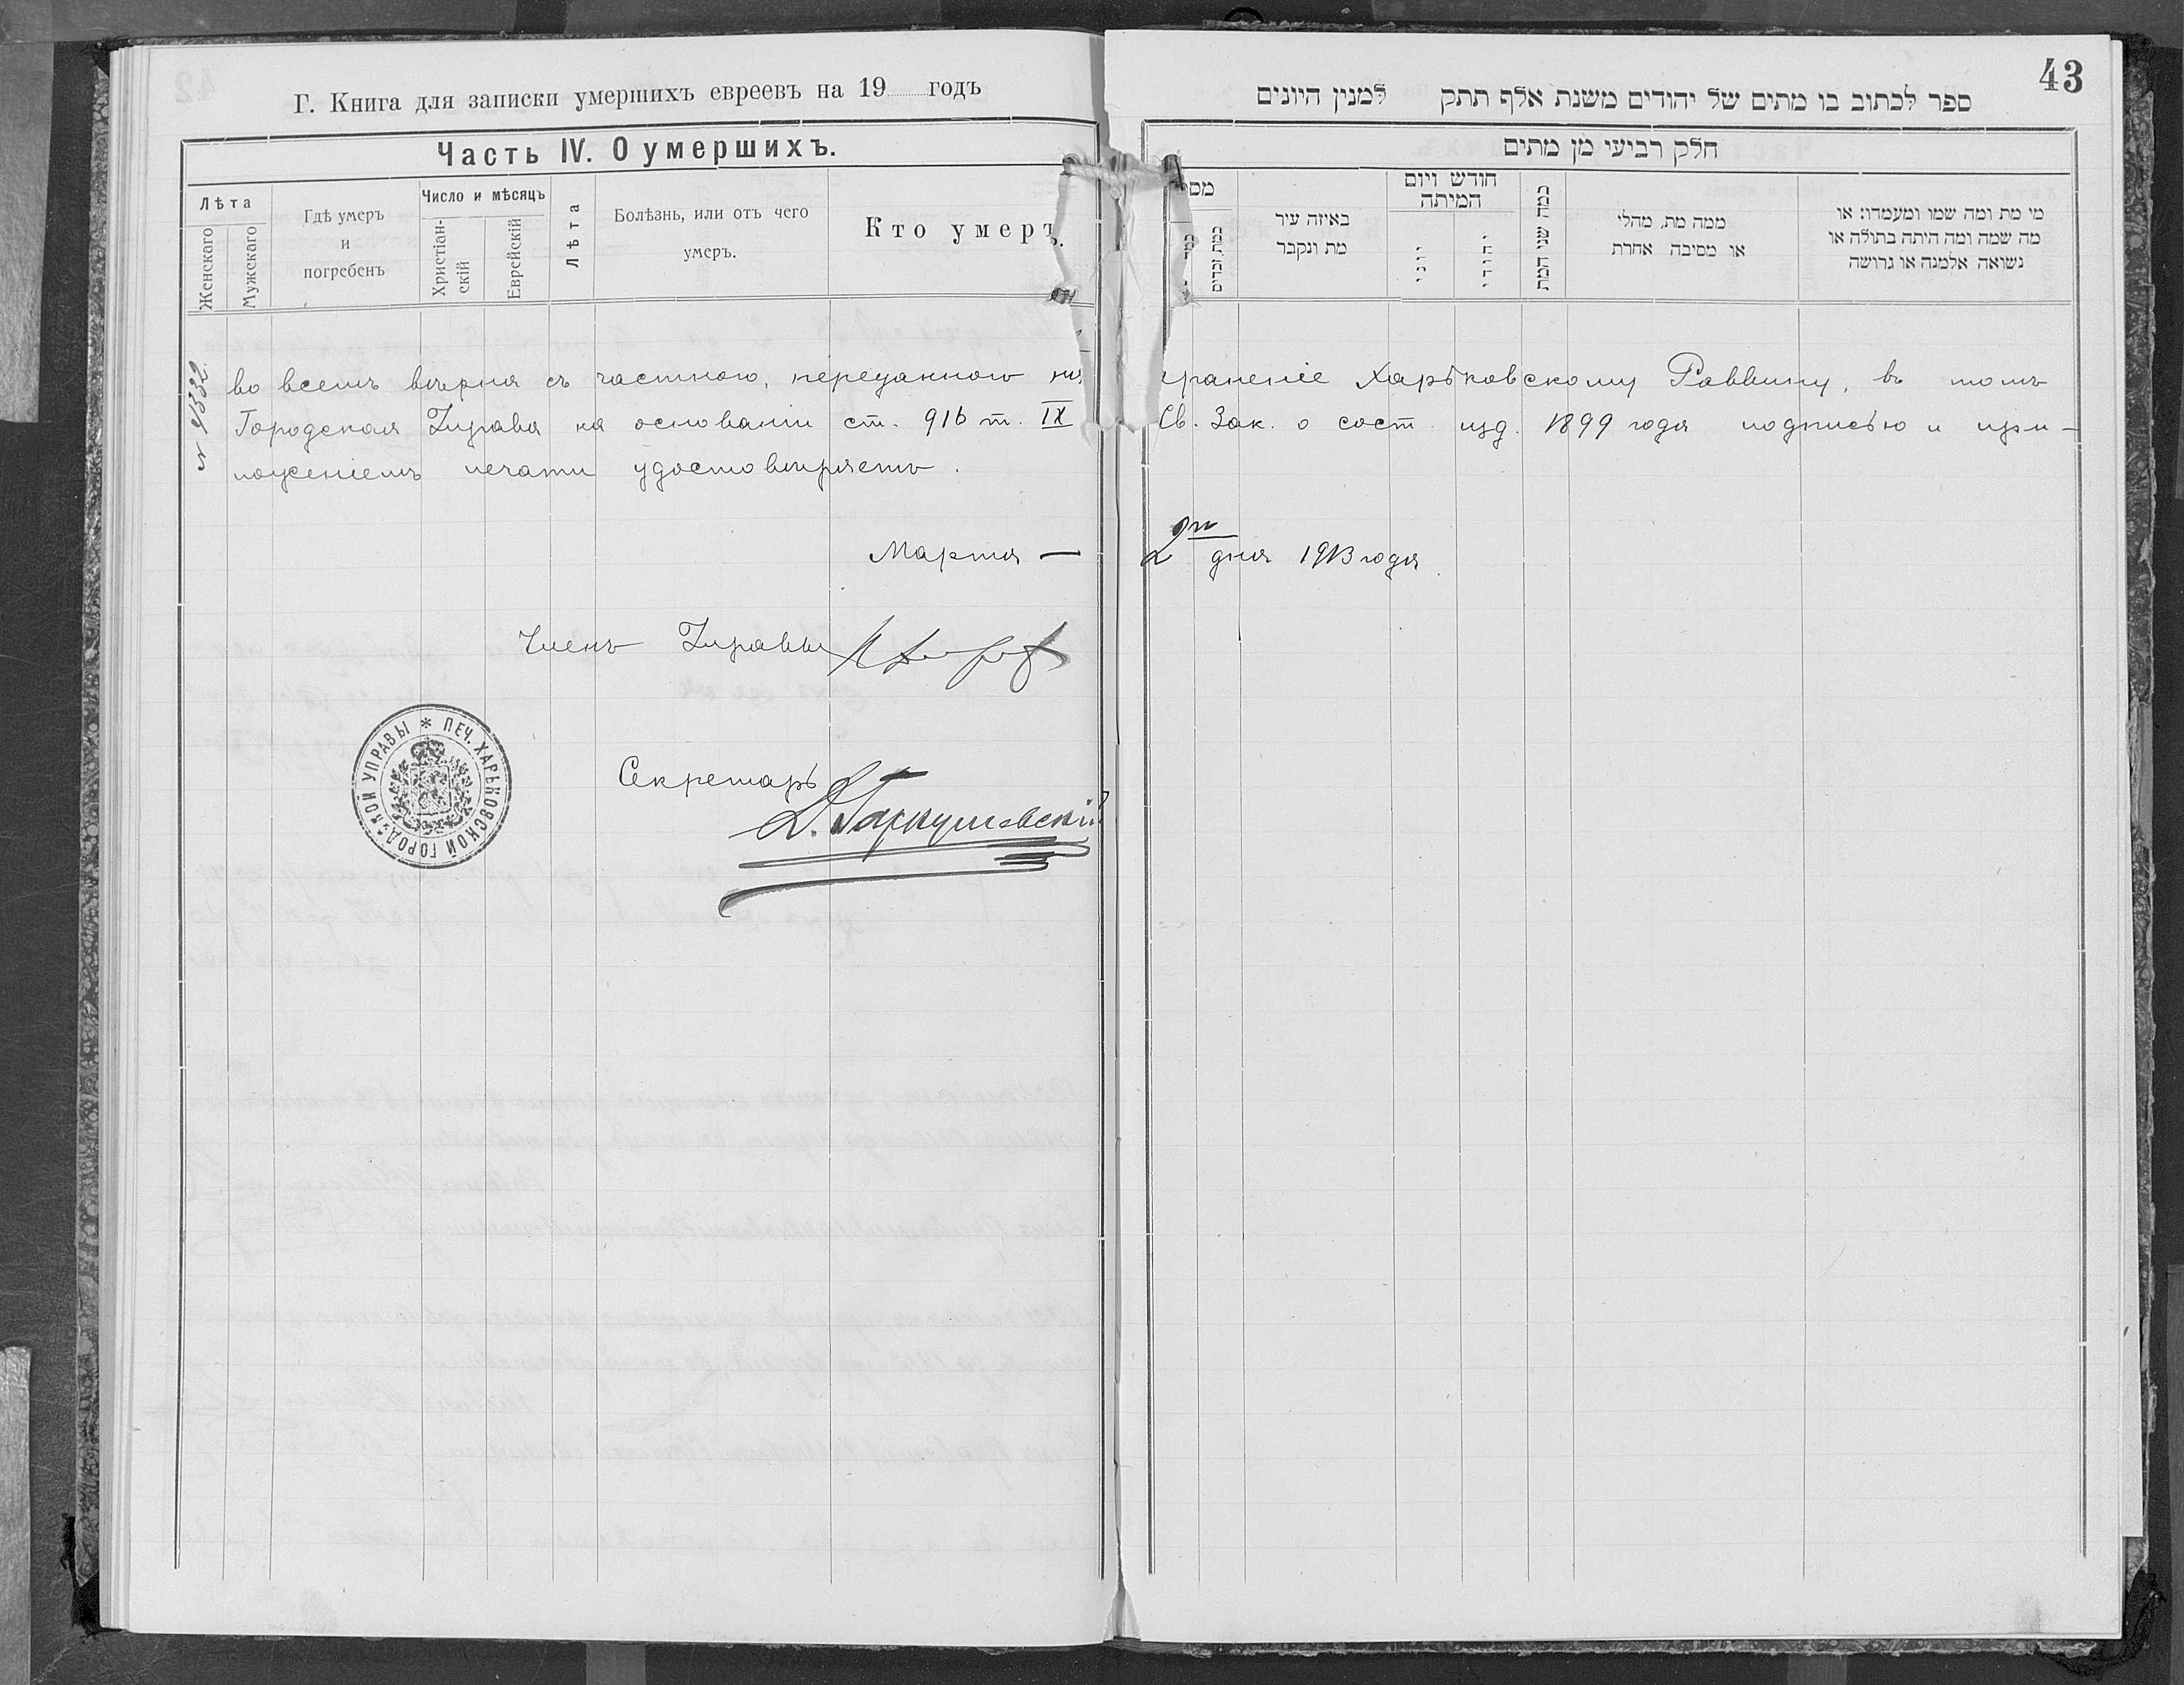 43
Г. Книга для записки умершихъ евреевъ на 19 годъ
ספר לכתוב בו מתים של יהודים משנת אלף תתק למנין היונים
Часть IV. О умершихъ.
חלק רביעי מן מתים
Лѣта
Женскаго
Мужскаго
Гдѣ умеръ
и
погребенъ
Число и мѣсяцъ
Христіан-
скій
Еврейскій
Лѣта
Болѣзнь, или отъ чего
умеръ.
Кто умеръ.
מס
כמת זכרים
באיזה עיר
מת ונקבר
חודש ויום
המיתה
יוני
יהודי
כמה שני המת
ממה מת, מהלי
או מסיבה אחרת
מי מת ומה שמו ומעמדו: או
מה שמה ומה היתה בתולה או
נשואה אלמנה או גרושה
во всемъ вѣрна съ частною, переданною на храненіе Харьковскому Раввину, въ томъ
Городская Управа на основаніи ст. 916 т. IX Св. Зак. о сост. изд. 1899 года подписью и при-
ложеніемъ печати удостовѣряетъ.
Марта — 2 дня 1913 года
Членъ Управы
Секретарь
ПЕЧ. ХАРЬКОВСКОЙ ГОРОДСКОЙ УПРАВЫ